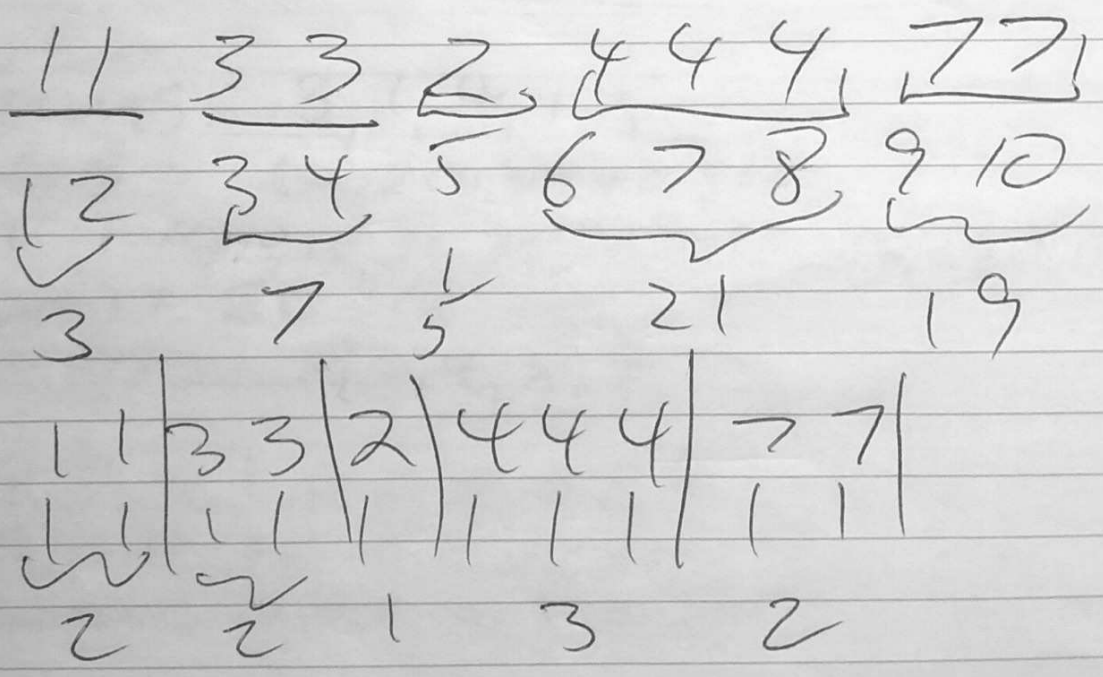 1 1 3 3 2 4 4 4 7 7
1 2 3 4 5 6 7 8 9 10
3 7 5 21 19
1 1 | 3 3 | 2 | 4 4 4 | 7 7 |
1 1 | 1 1 | 1 | 1 1 1 | 1 1 |
2 2 1 3 2